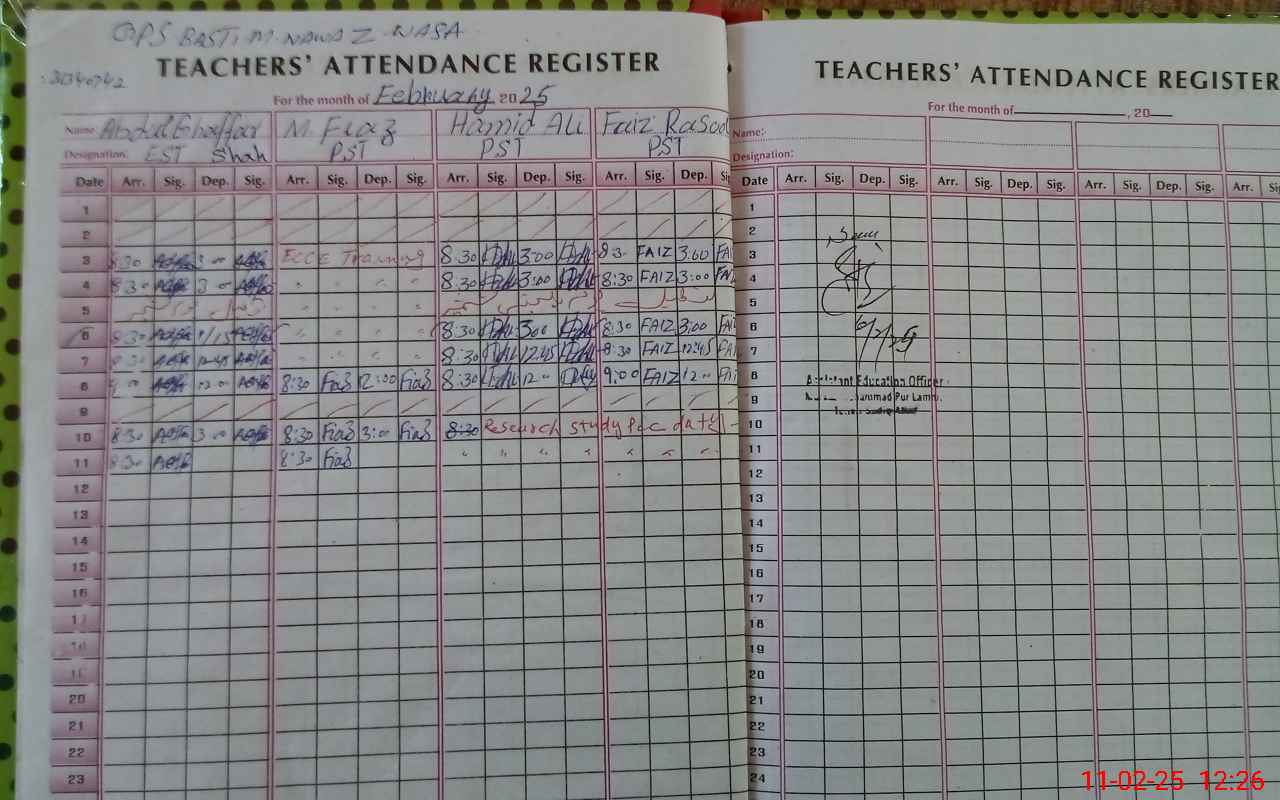 GPS BASTI M. NAWAZ NASA
31340742
TEACHERS' ATTENDANCE REGISTER
For the month of February 2025
Name Abdul Ghaffar M Fiaz Hamid Ali Faiz Rasool
Designation: EST Shah PST PST PST
Date Arr. Sig. Dep. Sig. Arr. Sig. Dep. Sig. Arr. Sig. Dep. Sig. Arr. Sig. Dep. Si
1
2
3 8:30 3:00 ECCE Training 8:30 3:00 8:30 FAIZ 3:00 FAI
4 8:30 3:00 " " " " 8:30 3:00 8:30 FAIZ 3:00 FAI
5
6 8:30 1/15 " " " " 8:30 3:00 8:30 FAIZ 3:00 FAI
7 8:30 12:45 " " " " 8:30 12:45 8:30 FAIZ 12:45 FAI
8 9:00 12:00 8:30 Fiaz 12:00 Fiaz 8:30 12:00 9:00 FAIZ 12:00 FAI
9
10 8:30 3:00 8:30 Fiaz 3:00 Fiaz 8:30 Research study data
11 8:30 8:30 Fiaz " " " " " " " "
12
13
14
15
16
17
18
19
20
21
22
23
TEACHERS' ATTENDANCE REGISTER
For the month of , 20
Name:
Designation:
Date Arr. Sig. Dep. Sig. Arr. Sig. Dep. Sig. Arr. Sig. Dep. Sig. Arr. Si
1
2
3
4
5
6
7
8
9
10
11
12
13
14
15
16
17
18
19
20
21
22
23
24
Assistant Education Officer
Muhammad Pur Lamma
11-02-25 12:26